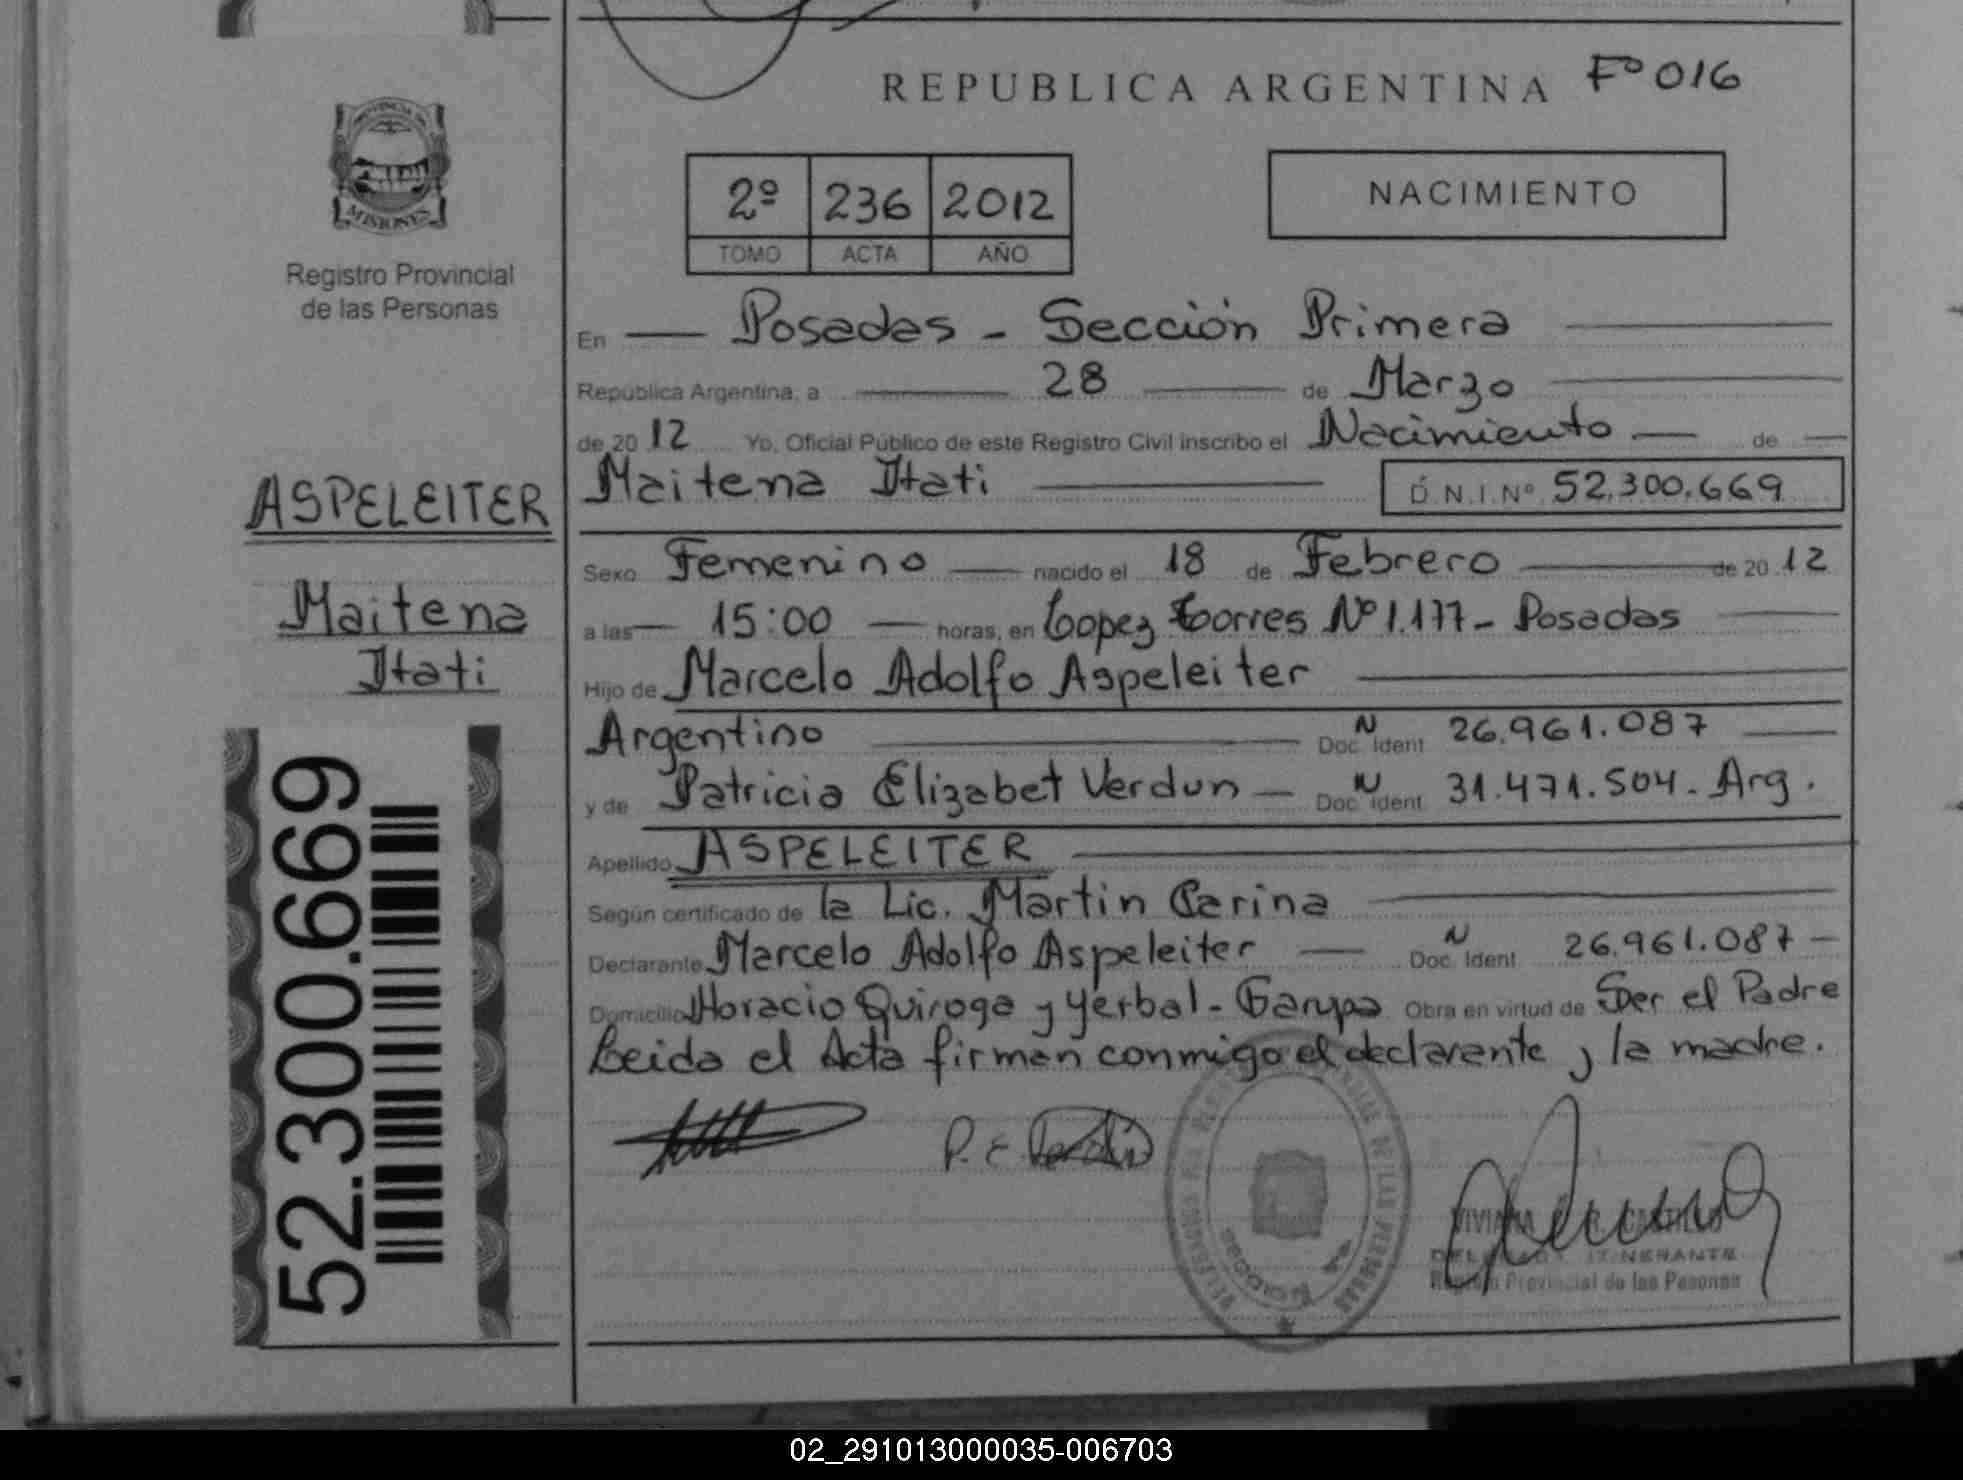 REPUBLICA ARGENTINA Fº 016
PROVINCIA DE
MISIONES
Registro Provincial
de las Personas
2º 236 2012
TOMO ACTA AÑO
NACIMIENTO
En Posadas - Sección Primera
Republica Argentina, a 28 de Marzo
de 20 12 Yo, Oficial Público de este Registro Civil inscribo el Nacimiento de
Maitena Itati D.N.I.Nº 52.300.669
ASPELEITER
Maitena
Itati
52.300.669
Sexo Femenino nacido el 18 de Febrero de 20 12
a las 15:00 horas, en Lopez Torres Nº 1.177 - Posadas
Hijo de Marcelo Adolfo Aspeleiter
Argentino Doc. Ident N 26.961.087
y de Patricia Elizabet Verdun Doc. Ident N 31.471.504. Arg.
Apellido ASPELEITER
Según certificado de la Lic. Martin Carina
Declarante Marcelo Adolfo Aspeleiter Doc. Ident N 26.961.087
Domicilio Horacio Quiroga y Yerbal - Garupa Obra en virtud de Ser el Padre
Leida el Acta firman conmigo el declarante y la madre.
P. E.
DE LAS PERSONAS
VIVIANA CASTILLO
ITINERANTE
Provincial de las Personas
02_291013000035-006703